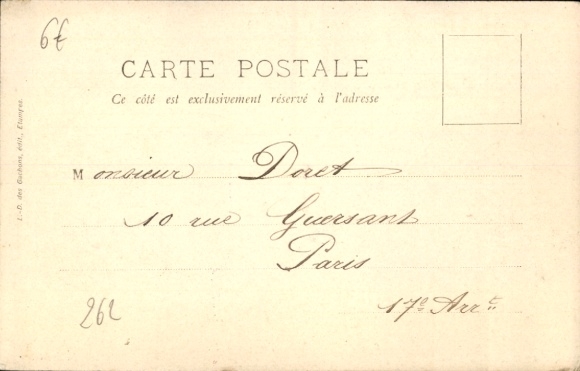 6€
CARTE POSTALE
Ce côté est exclusivement réservé à l'adresse
Monsieur Doret
10 rue Guersant
Paris
17e Arrt
262
L.-D. des Gachons, édit., Etampes.